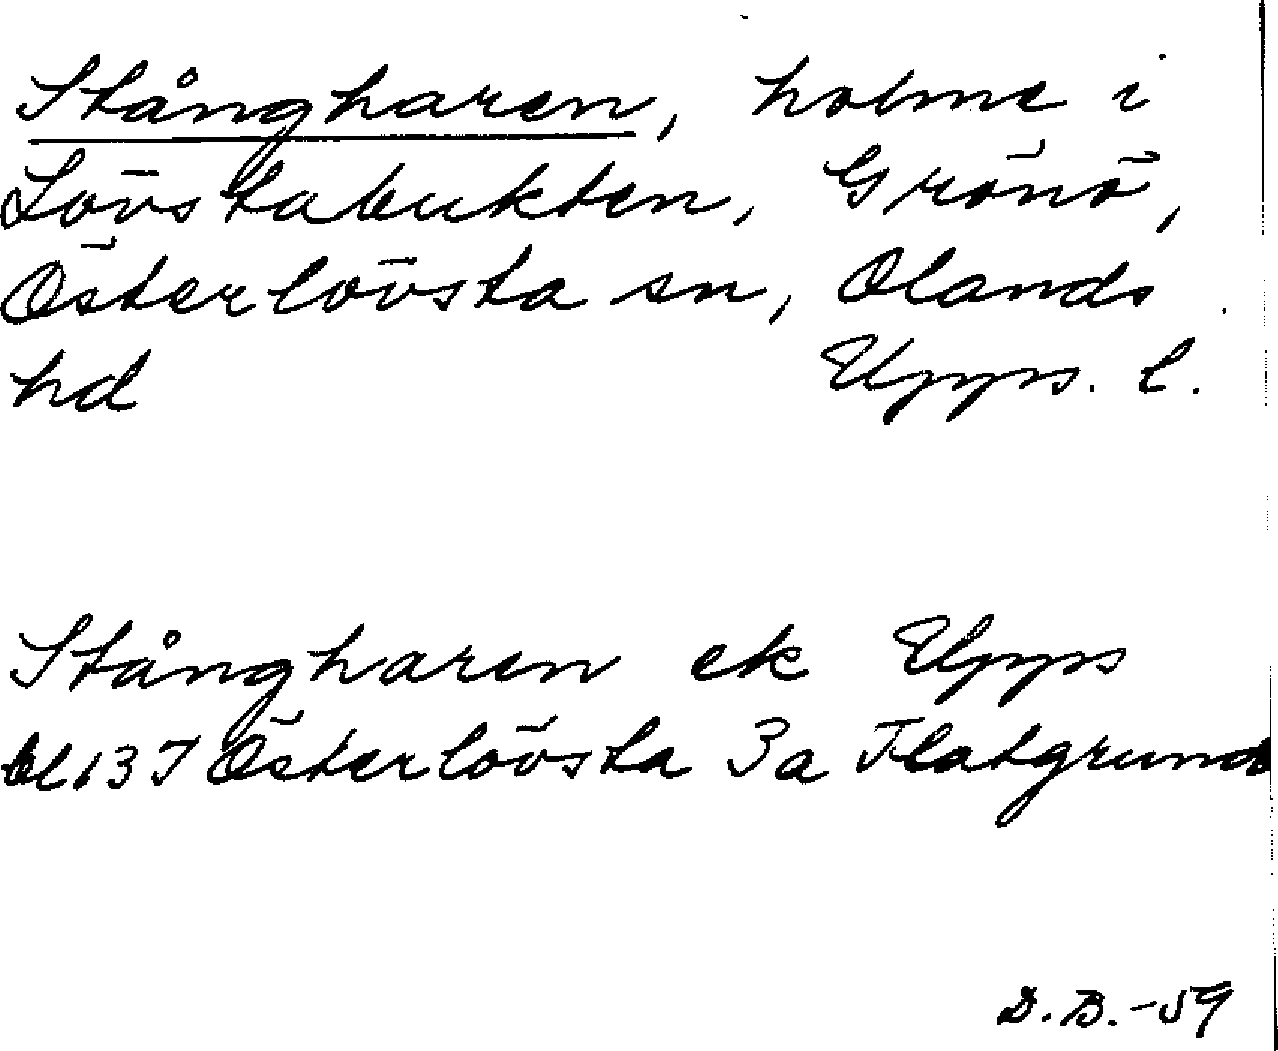 Stångharen, holme i
Lövstabukten, Grönö,
Österlövsta sn, Olands
hd Upps. l.
Stångharen ek Upps
bl 13 I Österlövsta 3a Flatgrund
D.B.-59